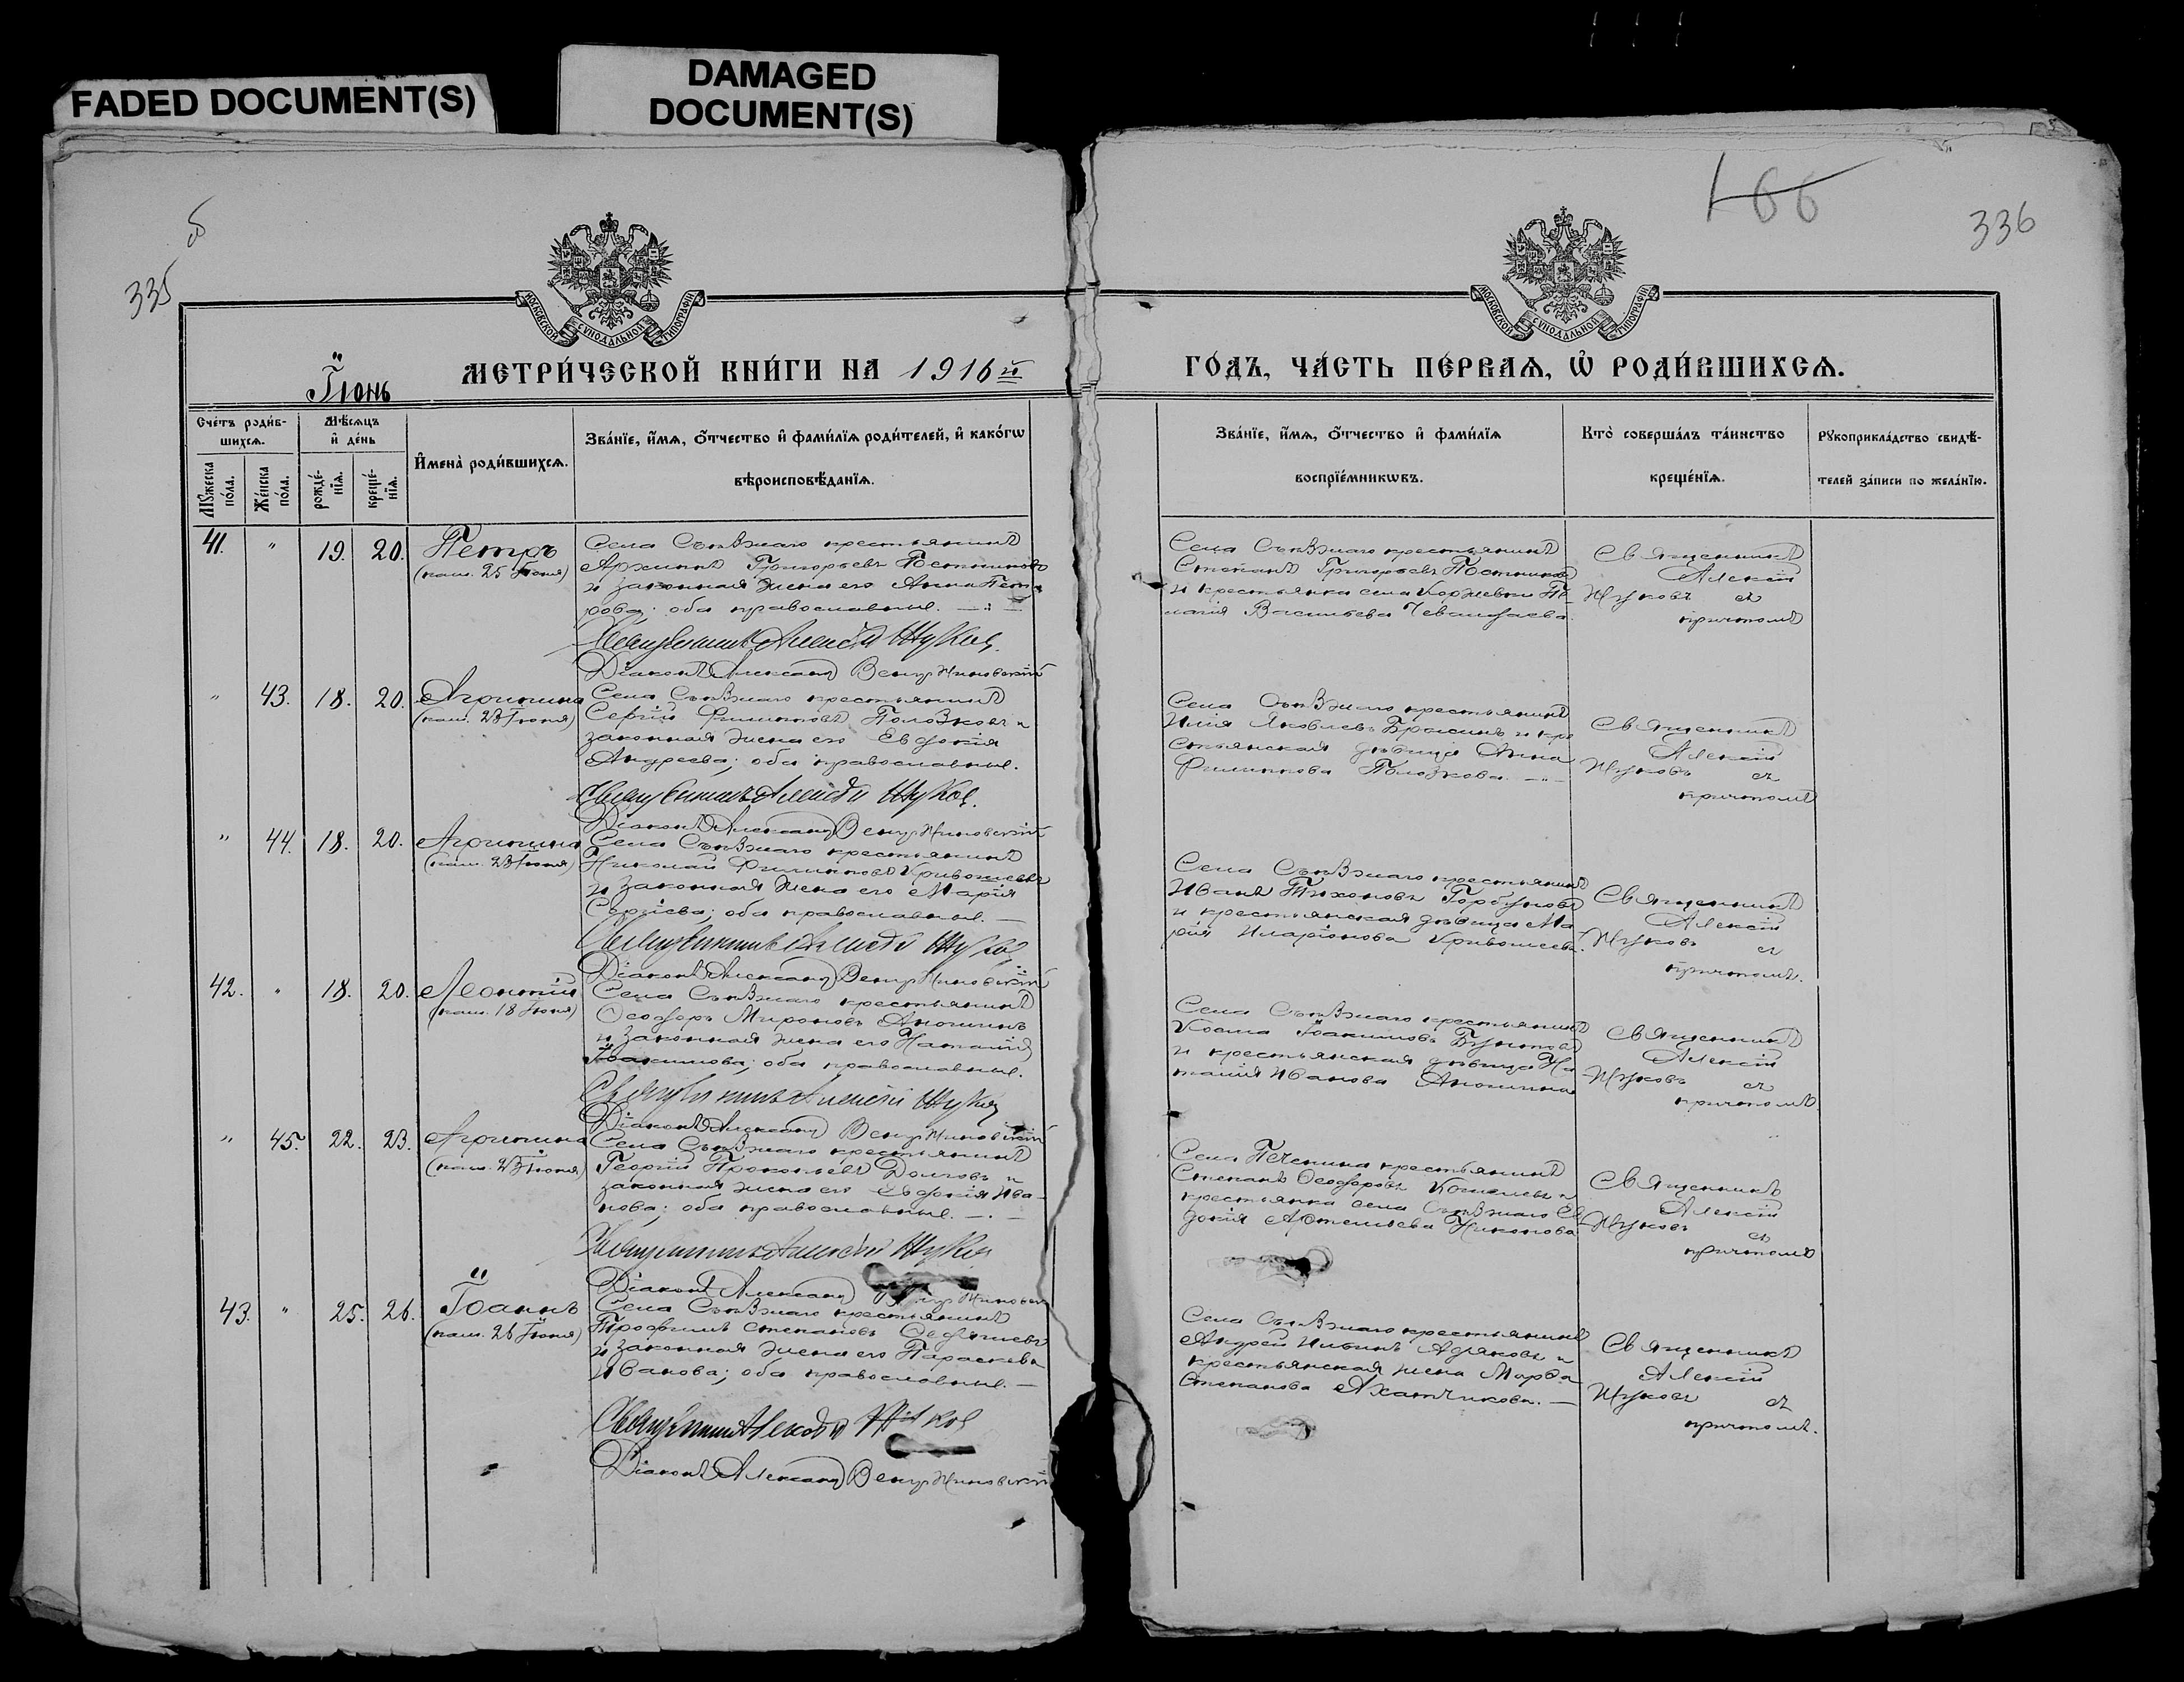 FADED DOCUMENT(S)
DAMAGED
DOCUMENT(S)
335
166
336
МОСКОВСКОЙ СѴНОДАЛЬНОЙ ТИПОГРАФІИ
МОСКОВСКОЙ СѴНОДАЛЬНОЙ ТИПОГРАФІИ
Іюнь
МЕТРИ́ЧЕСКОЙ КНИ́ГИ НА 1916й
ГО́ДЪ, ЧА́СТЬ ПЕ́РВАѦ, Ѡ҆ РОДИ́ВШИХСѦ.
Сче́тъ роди́в-
шихсѧ.
Мѣ́сѧцъ
и҆ де́нь
Мꙋжеска
по́ла.
Же́нска
по́ла.
рожде́-
нїѧ.
креще́-
нїѧ.
И҆мена̀ роди́вшихсѧ.
Зва́нїе, и҆́мѧ, ѻ҆́тчество и҆ фами́лїѧ роди́телей, и҆ како́гѡ
вѣроисповѣ́данїѧ.
Зва́нїе, и҆́мѧ, ѻ҆́тчество и҆ фами́лїѧ
воспрїе́мникѡвъ.
Кто̀ соверша́лъ та́инство
креще́нїѧ.
Рꙋкоприкла́дство свидѣ́-
телей за́писи по жела́нїю.
41. " 19. 20. Петръ
(пам. 25 Іюня)
Села Съѣзжаго крестьянинъ
Архипъ Григорьевъ Постников
и законная жена его Анна Пет-
рова; оба православные.
Священникъ Алексій Жуков.
Діаконъ Александ
Села Съѣзжаго крестьянинъ
Степанъ Григорьевъ Постников
и крестьянка села Коржевки Пе-
лагія Васильева
Священникъ
Алексій
Жуковъ съ
причтомъ
" 43. 18. 20. Агрипина
(пам. 23 Іюня)
Села Съѣзжаго крестьянинъ
Сергій Филипповъ Полозковъ и
законная жена его Евдокія
Андреева; оба православные.
Священникъ Алексій Жуков.
Діаконъ Александ
Села Съѣзжаго крестьянинъ
Илія Яковлевъ и кре
стьянская дѣвица Анна
Филиппова Полозкова.
Священникъ
Алексій
Жуковъ съ
причтомъ
" 44. 18. 20. Агрипина
(пам. 23 Іюня)
Села Съѣзжаго крестьянинъ
Николай Филипповъ Кривошеевъ
и законная жена его Марія
Сергіева; оба православные.
Священникъ Алексій Жуков
Діаконъ Александ
Села Съѣзжаго крестьянинъ
Иванъ Тихоновъ Горбуновъ
и крестьянская дѣвица Ма
рія Иларіонова Кривошеева.
Священникъ
Алексій
Жуковъ съ
причтомъ.
42. " 18. 20. Леонтій
(пам. 18 Іюня)
Села Съѣзжаго крестьянинъ
Ѳеодоръ Мироновъ Аношинъ
и законная жена его Наталія
Іоакимова; оба православные.
Священникъ Алексій Жуков
Діаконъ Александ
Села Съѣзжаго крестьянинъ
Косма Іоакимовъ
и крестьянская дѣвица На
талія Иванова Аношина
Священникъ
Алексій
Жуковъ съ
причтомъ.
" 45. 22. 23. Агрипина
(пам. 23 Іюня)
Села Съѣзжаго крестьянинъ
Георгій Прокопьевъ Долговъ и
законная жена его Евдокія Ива-
нова; оба православные.
Священникъ Алексій Жуков
Діаконъ Александ
Села Печенина крестьянинъ
Степанъ Ѳеодоровъ и
крестьянка села Съѣзжаго Ев
докія Никонова
Священникъ
Алексій
Жуковъ съ
причтомъ
43. " 25. 26. Іоаннъ
(пам. 26 Іюня)
Села Съѣзжаго крестьянинъ
Трофимъ Степановъ
и законная жена его Параскева
Иванова; оба православные.
Священник Алексій Жуков
Діаконъ Александ
Села Съѣзжаго крестьянинъ
Андрей и
крестьянская жена Марѳа
Степанова
Священникъ
Алексій
Жуковъ съ
причтомъ.